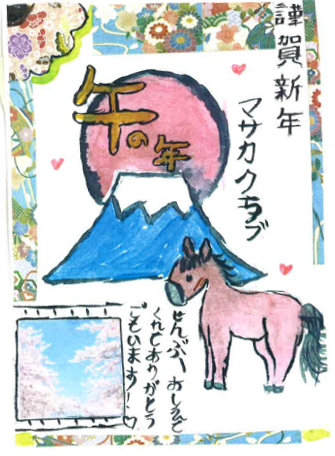 謹賀新年
午の年
マサカクラブ
ぜんぶ、おしえて
くれてありがとう
ございます！